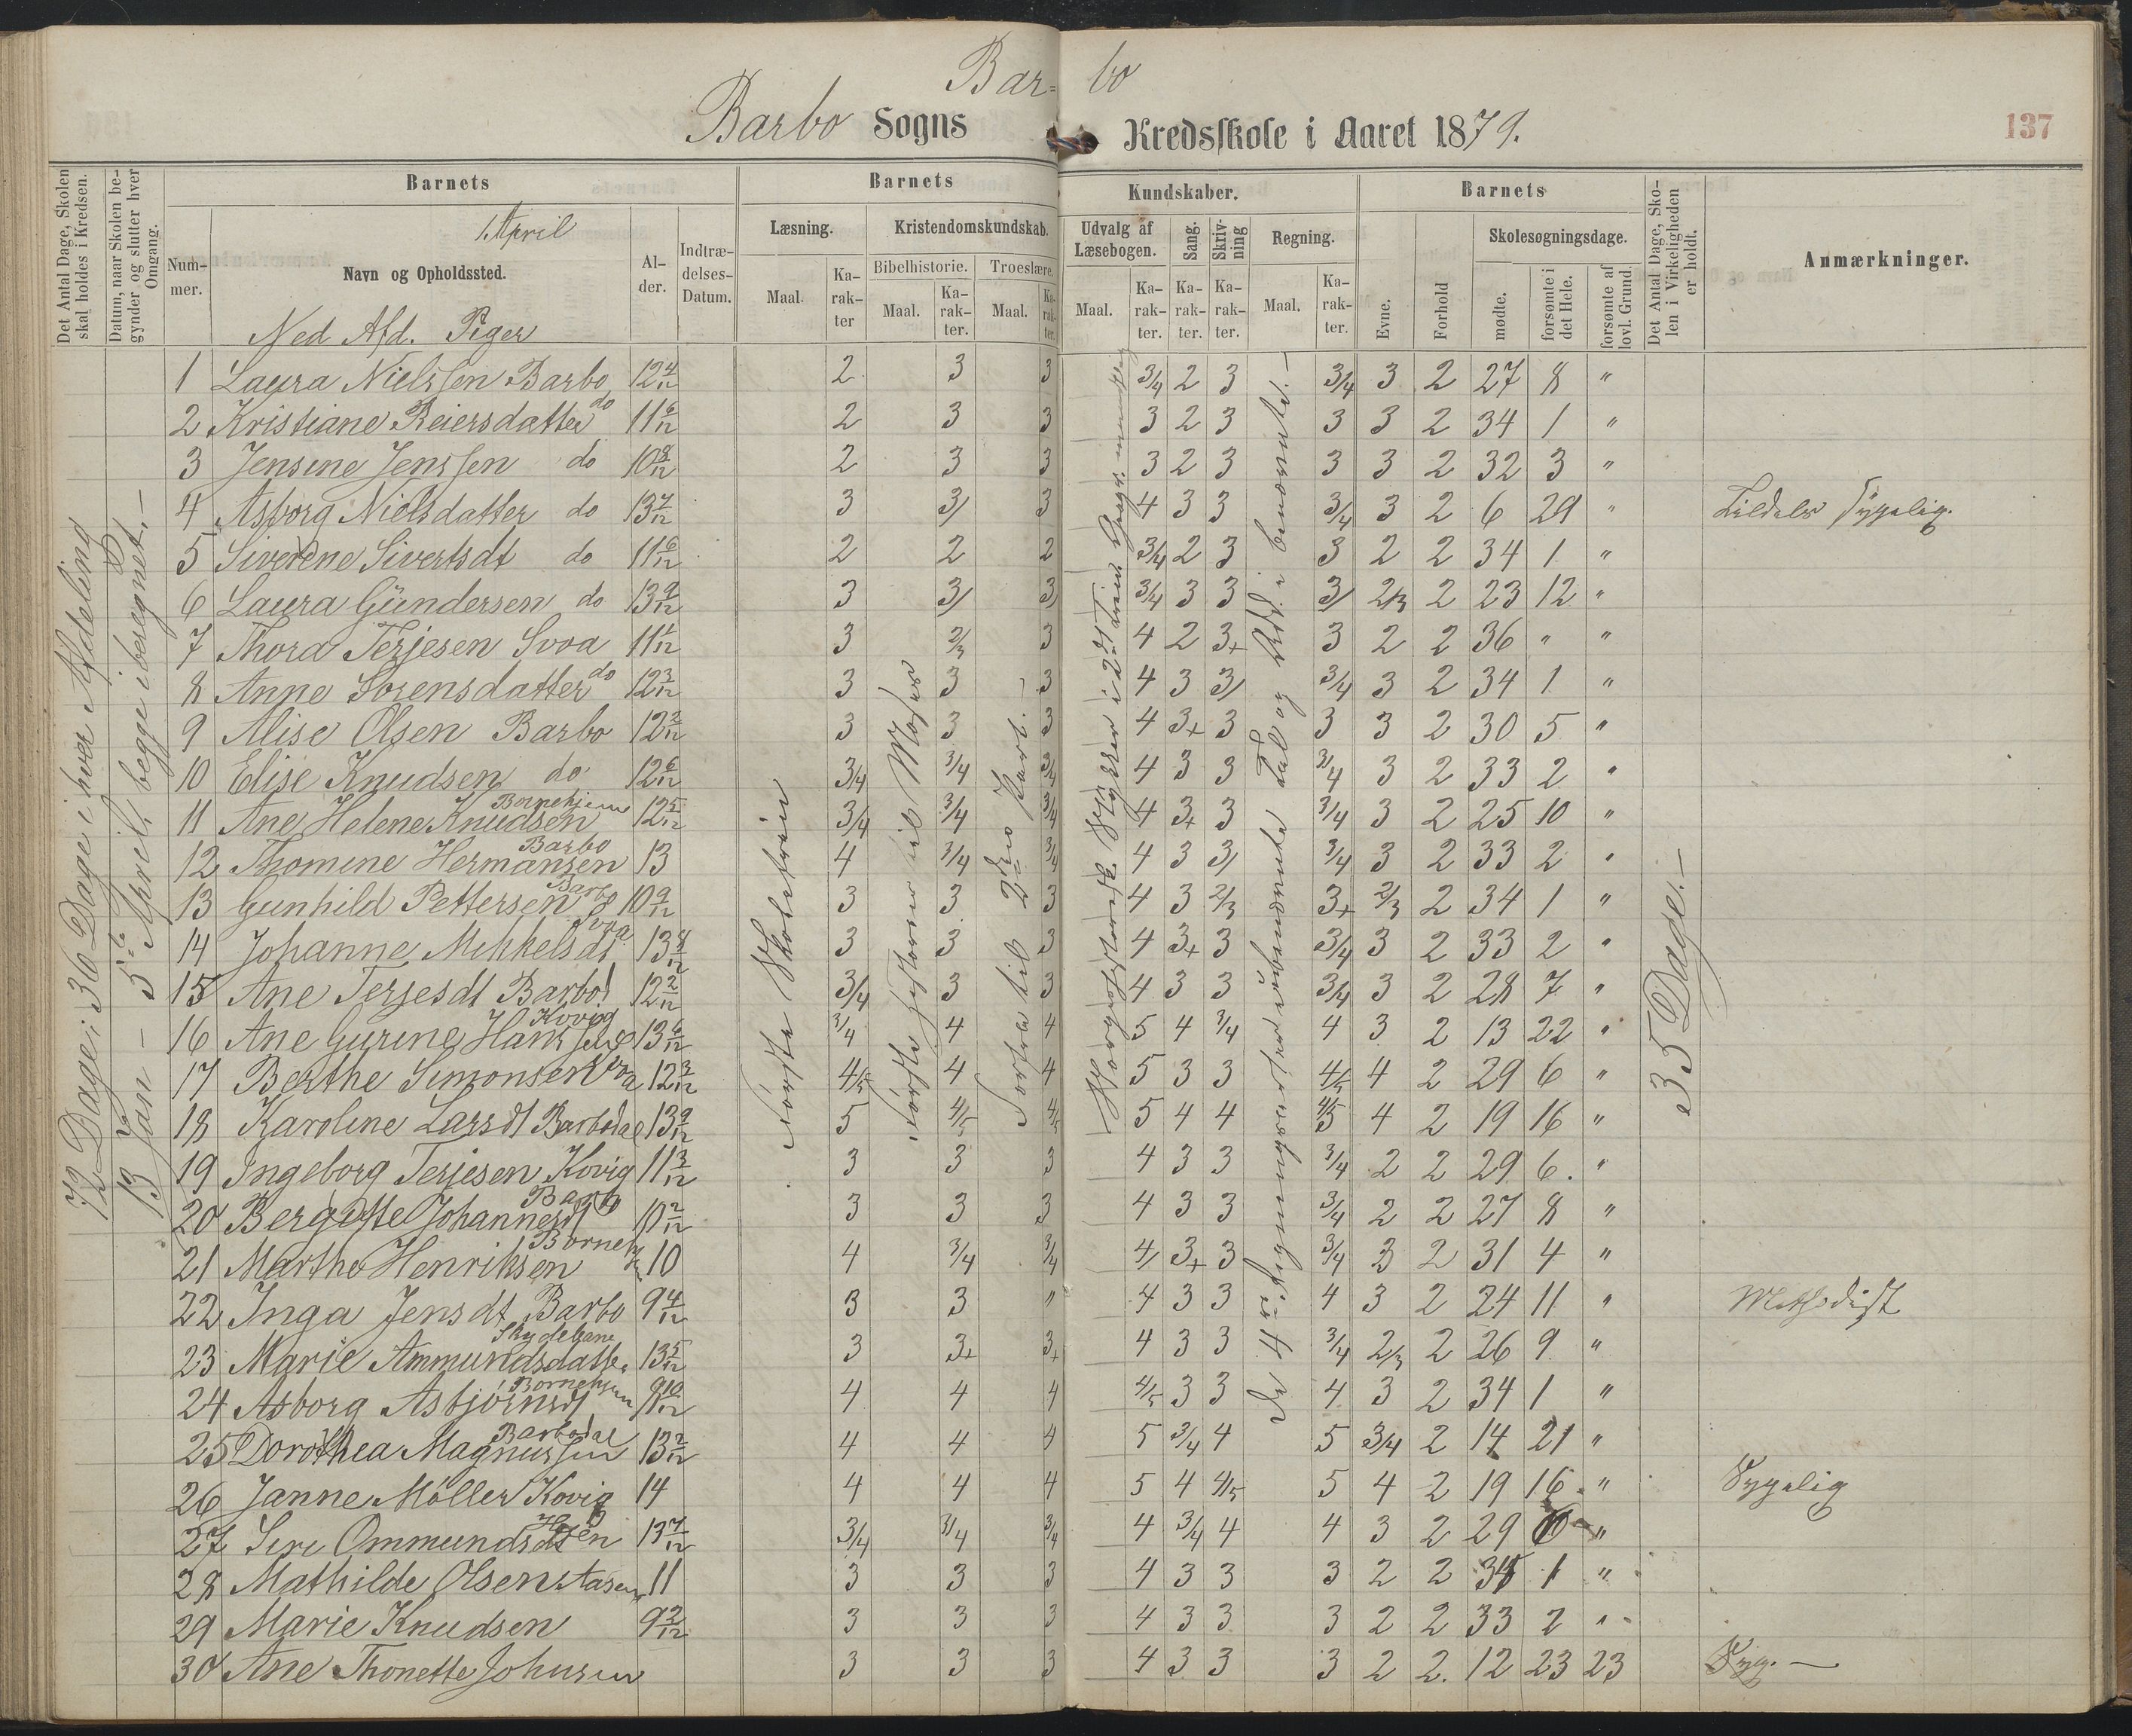 Bar= bo
Barbo Sogns Kredsskole i Aaret 1879.
137
Det Antal Dage, Skolen skal holdes i Kredsen.
Datum, naar Skolen begynder og slutter hver Omgang.
Barnets
Barnets Kundskaber.
Barnets
Det Antal Dage, Skolen i Virkeligheden er holdt.
Anmærkninger.
Nummer.
1. April
Navn og Opholdssted.
Alder.
Indtrædelses-Datum.
Læsning. Kristendomskundskab. Udvalg af Læsebogen. Sang. Skrivning Regning. Evne. Forhold Skolesøgningsdage.
Bibelhistorie. Troeslære.
Maal. Karakter Maal. Karakter. Maal. Karakter. Maal. Karakter. Karakter. Karakter. Maal. Karakter.
mødte. forsømte i det Hele. forsømte af lovl. Grund.
Ned Afd. Piger
72 Dage: 36 Dage i hver Afdeling
13 Jan – 5te April, begge iberegnet.–
første Skoletrin
første historier til Moses
Sorte til 2den Part.
De 4 i ubenævnte Tal og i benævnte.–
35 Dage.–
1 Laura Nielssen Barbo 12 4/12 2 3 3 3/4 2 3 3/4 3 2 27 8 "
2 Kristiane Reiersdatter do 11 6/12 2 3 3 3 2 3 3 3 2 34 1 "
3 Jensine Jenssen do 10 8/12 2 3 3 3 2 3 3 3 2 32 3 "
4 Asborg Nielsdatter do 13 7/12 3 3/ 3 4 3 3 3/4 3 2 6 29 " Tildels Sygelig.
5 Siverene Sivertsdt do 11 6/12 2 2 2 3/4 2 3 3 2 2 34 1 "
6 Laura Gundersen do 13 9/12 3 3/ 3/ 3/4 3 3 3/ 2/3 2 23 12 "
7 Thora Terjesen Svoa 11 1/12 3 2/3 3 4 2 3+ 3 2 2 36 " "
8 Anne Sorensdatter do 12 3/12 3 3 3 4 3 3/ 3/4 3 2 34 1 "
9 Alise Olsen Barbo 12 2/12 3 3 3 4 3+ 3 3 3 2 30 5 "
10 Elise Knudsen do 12 6/12 3/4 3/4 3/4 4 3 3 3/4 3 2 33 2 "
11 Ane Helene Knudsen Bornehjem 12 5/12 3/4 3/4 3/4 4 3+ 3 3/4 3 2 25 10 "
12 Thomine Hermansen Barbo 13 4 3/4 3/4 4 3 3/ 3/4 3 2 33 2 "
13 Gunhild Pettersen Barbo 10 9/12 3 3 3 4 3 2/3 3+ 2/3 2 34 1 "
14 Johanne Mikkelsdt Svoa 13 8/12 3 3 3 4 3+ 3 3/4 3 2 33 2 "
15 Ane Terjesdt Barbod 12 2/12 3/4 3 3 4 3 3 3/4 3 2 28 7 "
16 Ane Gurine Hanssen Kovig 13 6/12 3/4 4 4 5 4 3/4 4 3 2 13 22 "
17 Berthe Simonsen Svoa 12 3/12 4/5 4 4 5 3 3 4/5 4 2 29 6 "
18 Karoline Larsdt Barbodal 13 9/12 5 4/5 4/5 5 4 4 4/5 4 2 19 16 "
19 Ingeborg Terjesen Kovig 11 3/12 3 3 3 4 3 3 3/4 2 2 29 6. "
20 Bergitte Johannesdt Barbo 10 2/12 3 3 3 4 3 3 3/4 2 2 27 8 "
21 Marthe Henriksen Borneh 10 4 3/4 3/4 4/ 3+ 3 3/4 3 2 31 4 "
22 Inga Jensdt Barbo 9 4/12 3 3 " 4 3 3 4 3 2 24 11 " Methodist
23 Marie Ammundsdatter Skydebane 13 5/12 3 3+ 3+ 4 3 3 3/4 2/3 2 26 9 "
24 Asborg Asbjörnsdt Bornehjem 9 10/12 4 4 4 4/5 3 3 4 3 2 34 1 "
25 Dorothea Magnussen Barbodal 13 2/12 4 4 4 5 3/4 4 5 3/4 2 14 21 "
26 Janne Möller Kovig 14 4 4 4 5 4 4/5 5 4 2 19 16 " Sygelig
27 Siri Ommundsdt 13 7/12 3/4 3/4 3/4 4 3/4 4 4 3 2 29 6 "
28 Mathilde Olsen 11 3 3 3 4 3 3 3 2 2 34 1 "
29 Marie Knudsen 9 3/12 3 3 3 4 3 3 3 2 2 33 2 "
30 Ane Thonette Johnsen 3 3 3 4 3 3 3 2 2. 12 23 23 Syg.–